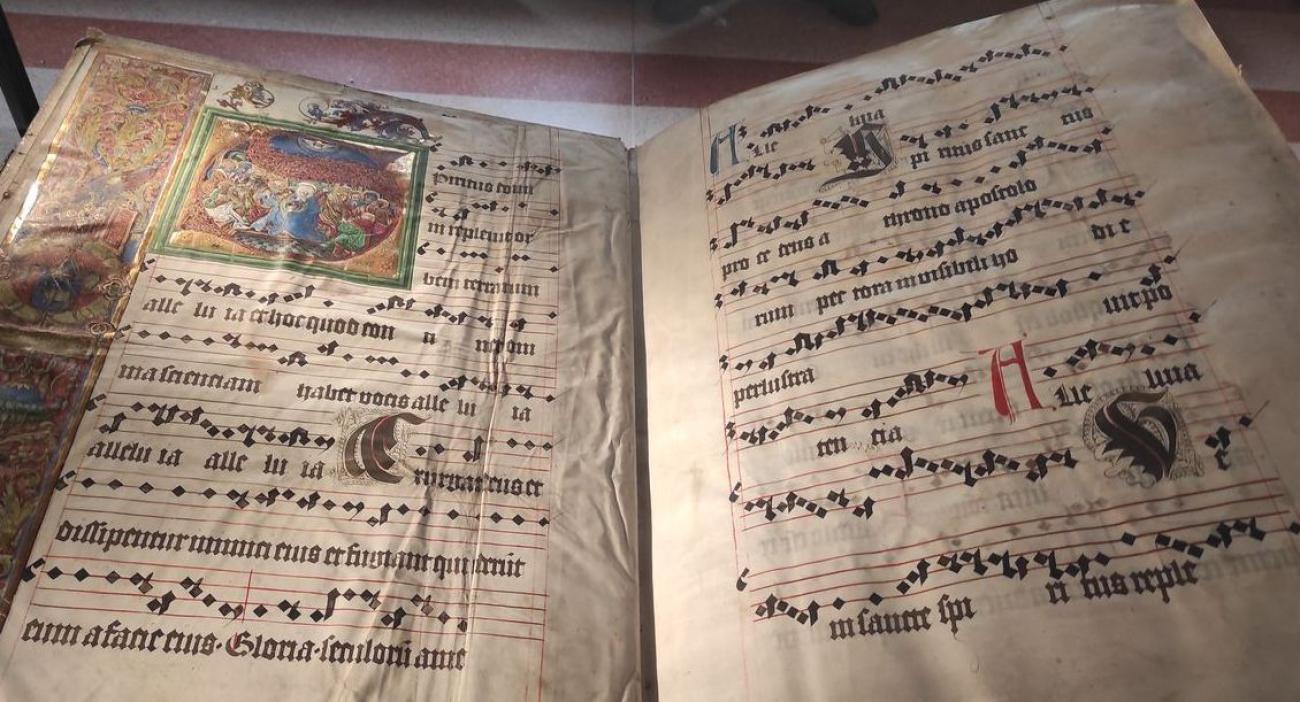 piritus domi
ni repleuit or
bem terrarum
alle lu ia et hoc quod con ti net om
nia scienciam habet vocis alle lu ia
allelu ia alle lu ia Exurgat deus et
dissipentur inimici eius et fugiant qui oderunt
eum a facie eius. Gloria. seculorū ame
A lle luia Spi ritus sanc tus
pro ce dens a throno apostolo
rum pec tora inuisibili uo di e
perlustra uit po
ten cia A Lle luia V e
ni sancte spi ri tus reple